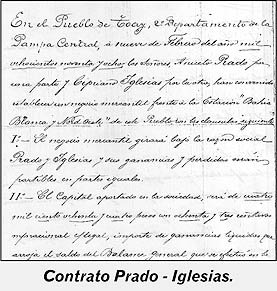 En el Pueblo de Toay, 2º Departamento de la
Pampa Central, á nueve de Febrero del año mil
ochocientos noventa y ocho, los Señores Aniceto Prado por
una parte y Cipriano Iglesias por la otra, han convenido
establecer un negocio mercantil frente á la Estacion "Bahia
Blanca y Nord Oeste" de este Pueblo, con las clausulas siguientes
1º.- El negocio mercantil girará bajo la razon social
Prado y Iglesias y sus ganancias y perdidas serán
partibles en partes iguales.
11º.- El Capital aportado en la sociedad, será de cuatro
mil ciento ochenta y cuatro pesos con ochenta y tres centavos
mⁿ nacional legal, importe de ganancias liquidas que
arroja el saldo del Balance General que se efectuó en la
Contrato Prado - Iglesias.